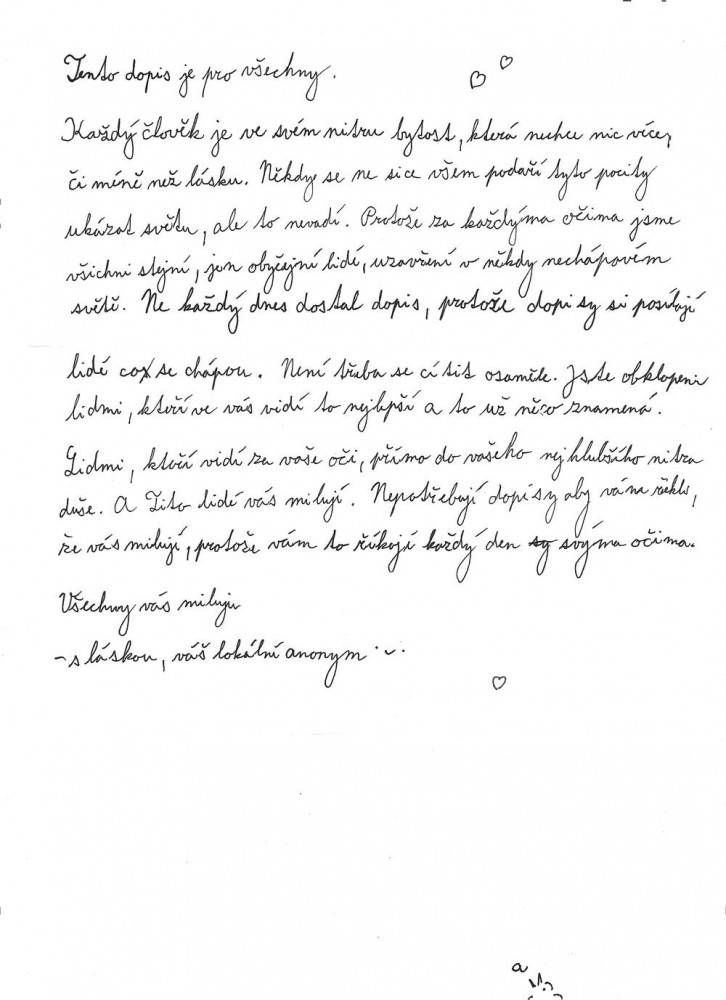 Tento dopis je pro všechny.
Každý člověk je ve svém nitru bytost, která nechce nic více,
či méně než lásku. Někdy se ne sice všem podaří tyto pocity
ukázat světu, ale to nevadí. Protože za každýma očima jsme
všichni stejní, jen obyčejní lidé, uzavření v někdy nechápovém
světě. Ne každý dnes dostal dopis, protože dopisy si posílají
lidé co se chápou. Není třeba se cítit osaměle. Jste obklopeni
lidmi, kteří ve vás vidí to nejlepší a to už něco znamená.
Lidmi, kteří vidí za vaše oči, přímo do vašeho nejhlubšího nitra
duše. A Tito lidé vás milují. Nepotřebují dopisy aby vám řekli,
že vás milují, protože vám to říkají každý den svýma očima.
Všechny vás miluju
- s láskou, váš lokální anonym
a